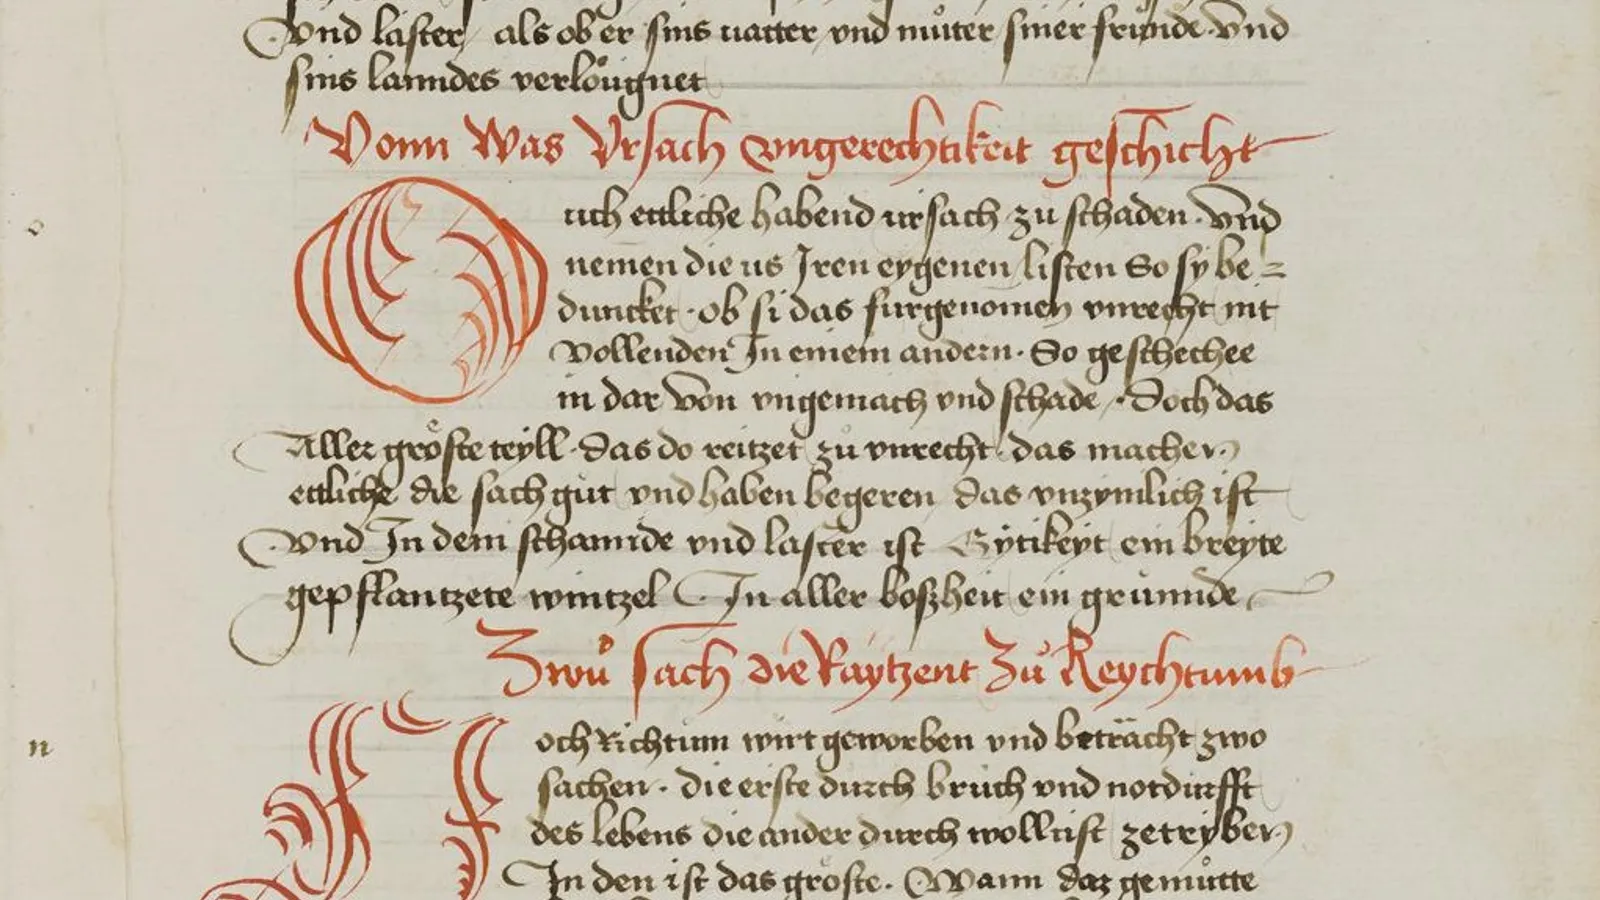 vnd laster / als ob er sins vatter vnd můter siner frůnde · Vnd
sins lanndes verlöugnet
Vonn Was Vrsach vngerechtikeit geschicht
O uch ettliche habend vrsach zů schaden · Vnd
nemen die us Iren eygenen listen So sy be=
duncket · ob si das furgenomen vnrecht nit
Vollenden In einem andern · So geschechee
in dar Von vngemach vnd schade · Doch das
Aller gröste teyll · das do reitzet zů vnrecht · das machen
ettliche die sach gůt vnd haben begeren das vnzymlich ist
Vnd In dem schannde vnd laster ist Gytikeyt ein breyte
gepflantzete wurtzel In aller boßheit ein grůnnde
Zwů sach die Raytzent Zů Reychtumb
o
n
och Richtum wirt geworben vnd betrácht zwo
sachen · die erste durch bruch vnd notdurfft
des lebens die ander durch wollust zetryben
In den ist das gröste · Wann daz gemůtte